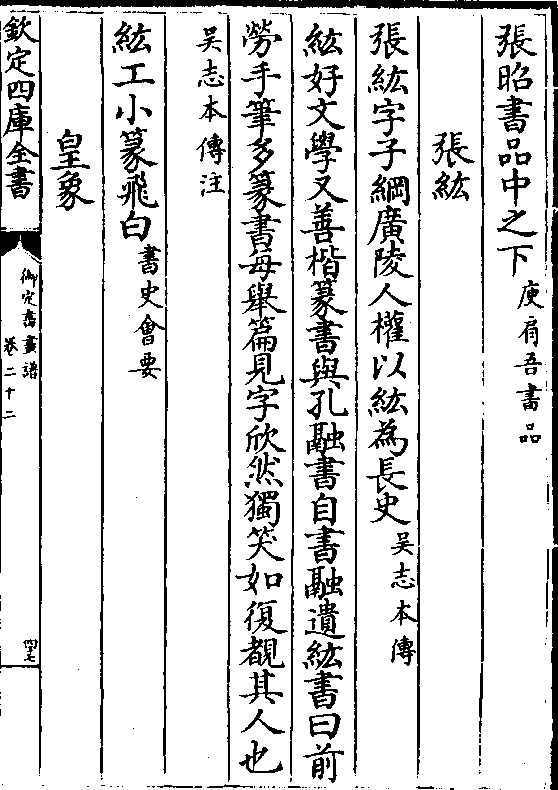 張昭書品中之下庾肩吾書品
張紘
張紘字子綱廣陵人權以紘為長史吳志本傳
紘好文學又善楷篆書與孔融書自書融遺紘書曰前
勞手筆多篆書每舉篇見字欣然獨笑如復覩其人也
吳志本傳注
紘工小篆飛白書史會要
皇象
欽定四庫全書
御定書畫譜
卷二十二
四十七